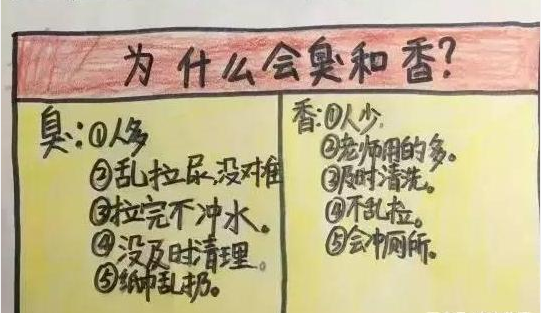 为什么会臭和香？
臭：①人多
②乱拉尿，没对准
③拉完不冲水。
④没及时清理。
⑤纸巾乱扔。
香：①人少
②老师用的多。
③及时清洗。
④不乱拉。
⑤会冲厕所。